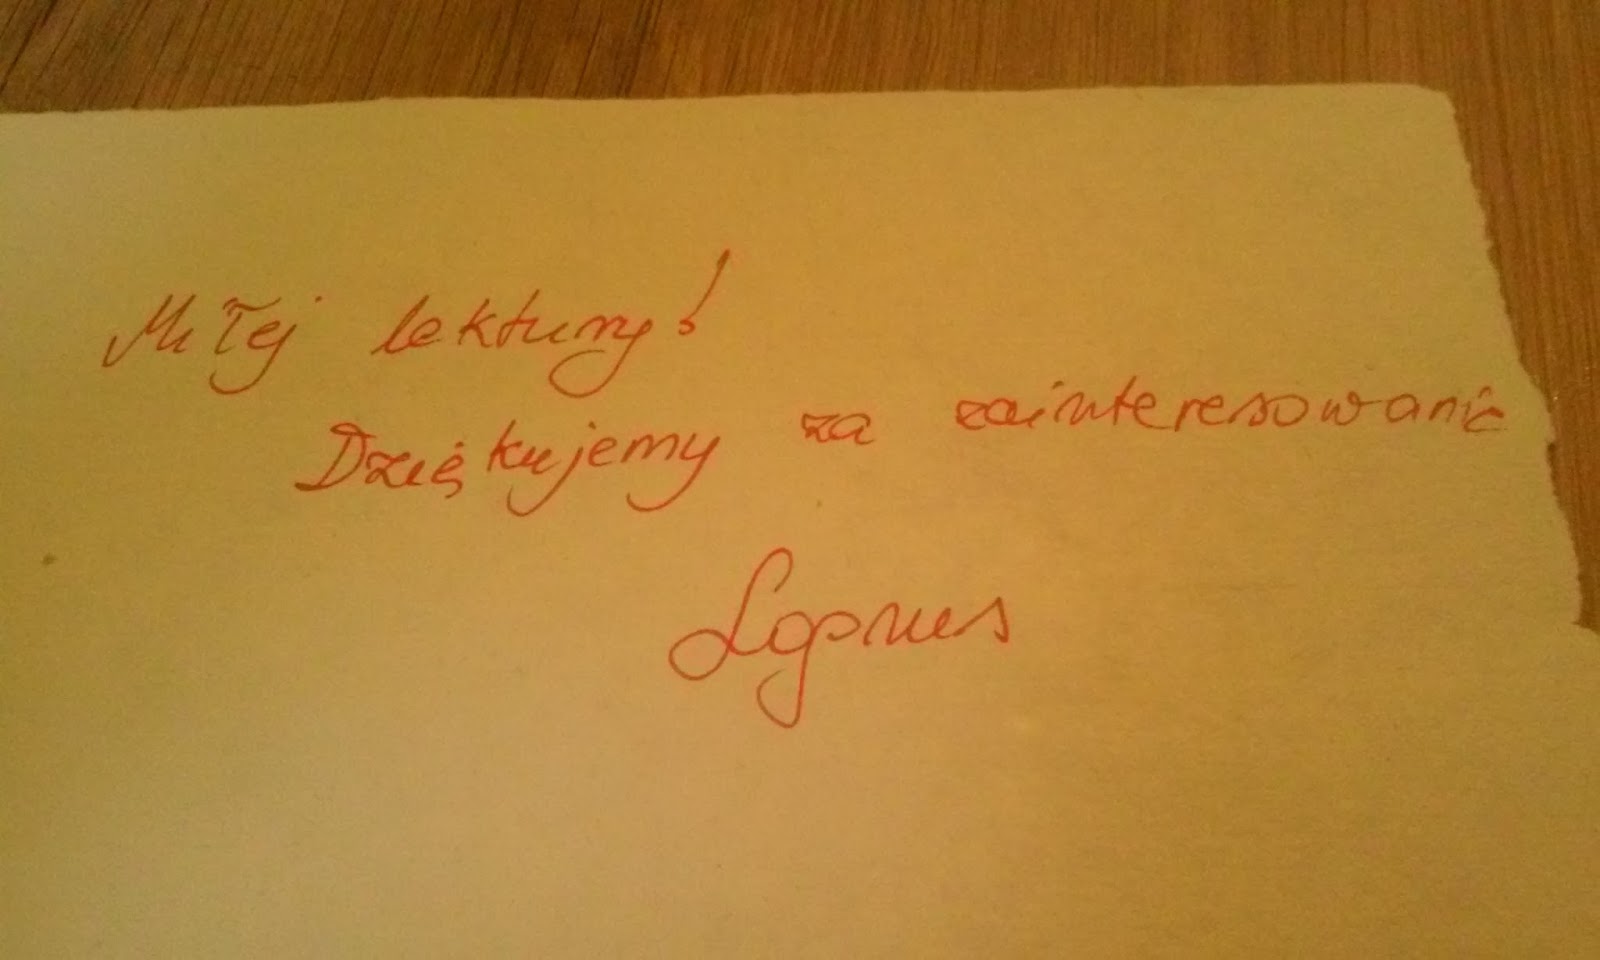 Miłej lektury!
Dziękujemy za zainteresowanie